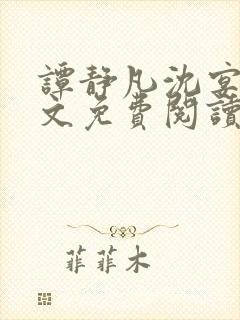 譚静凡沈宴
文免費閱讀
菲菲木